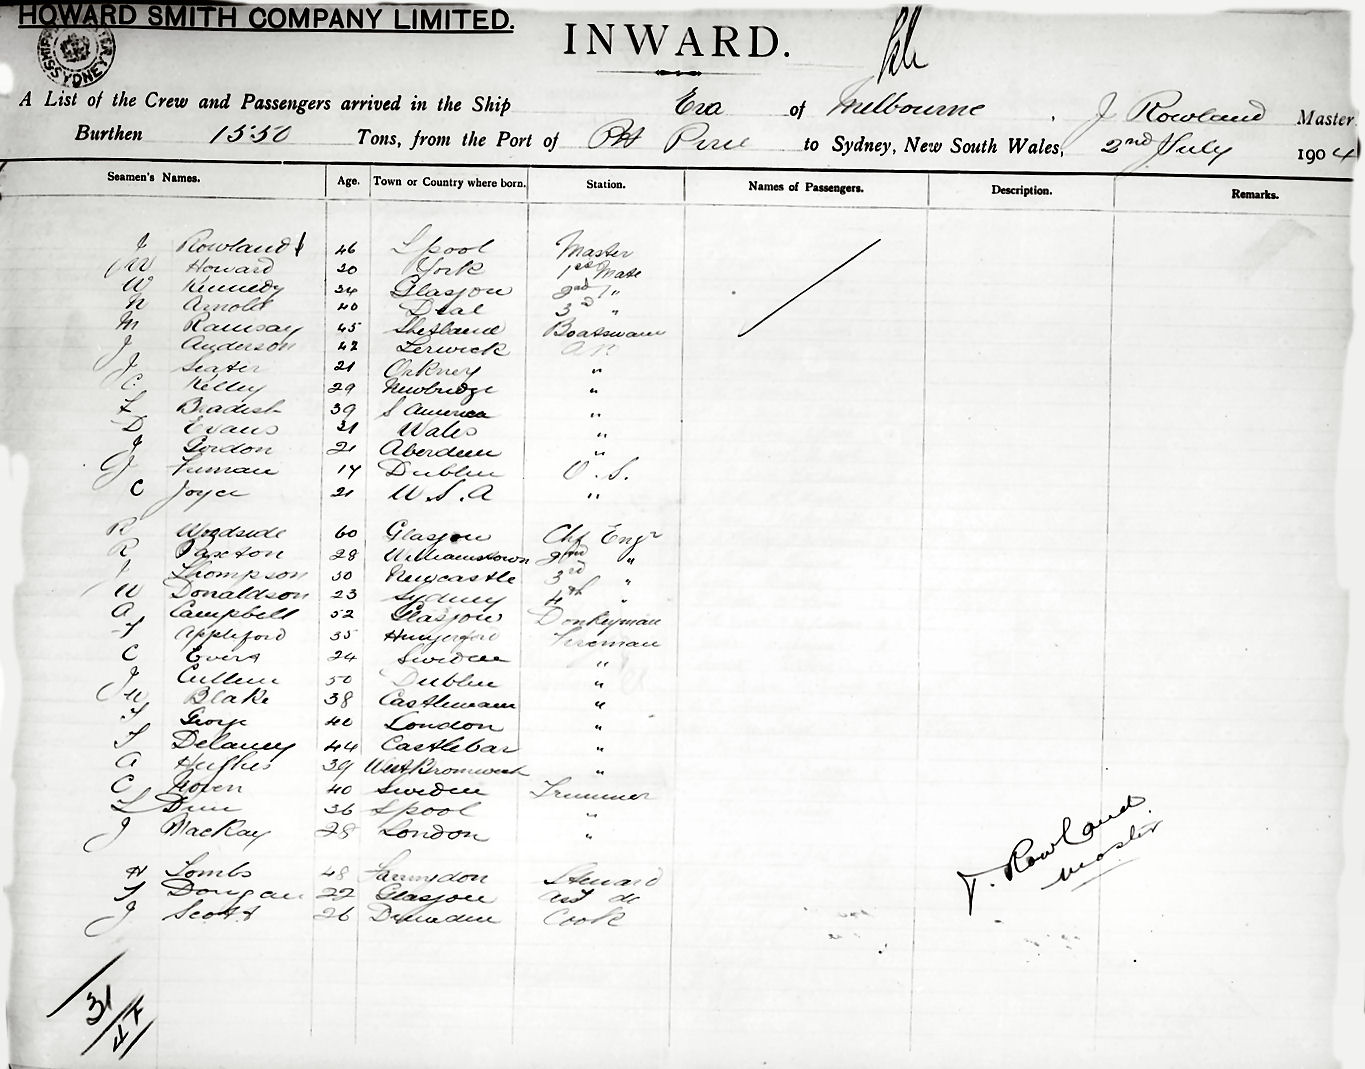 HOWARD SMITH COMPANY LIMITED.
INWARD.
SHIPPING MASTER SYDNEY
A List of the Crew and Passengers arrived in the Ship Era of Melbourne, J Rowland Master
Burthen 1550 Tons, from the Port of Pt Pirie to Sydney, New South Wales, 2nd July 1904
Seamen's Names. Age. Town or Country where born. Station. Names of Passengers. Description. Remarks.
J Rowland 46 L'pool Master
W Howard 30 York 1st Mate
W Kennedy 34 Glasgow 2nd "
N Arnold 40 Deal 3rd "
M Ramsay 45 Shetland Boatswain
J Anderson 42 Lerwick A B
J Slater 21 Orkney "
C Kelley 29 Newbridge "
F Bradish 39 S America "
D Evans 31 Wales "
J Gordon 21 Aberdeen "
J 17 Dublin O.S.
C Joyce 21 U.S.A "
R Woodside 60 Glasgow Chf Engr
R Paxton 28 Williamstown 2nd "
J Thompson 30 Newcastle 3rd "
W Donaldson 23 Sydney 4th "
A Campbell 52 Glasgow Donkeyman
T Appleford 35 Hungerford Fireman
C Evers 24 Sweden "
J Cullen 50 Dublin "
W Blake 38 Castlemaine "
T George 40 London "
T Delaney 44 Castlebar "
A Hughes 39 West Bromwich "
C 40 Sweden Trimmer
L Dunn 36 L'pool "
J MacKay 28 London "
H Tombs 48 Farringdon Steward
T Dougan 22 Glasgow Asst do
J Scott 26 Dunedin Cook
J. Rowland
Master
31
4F